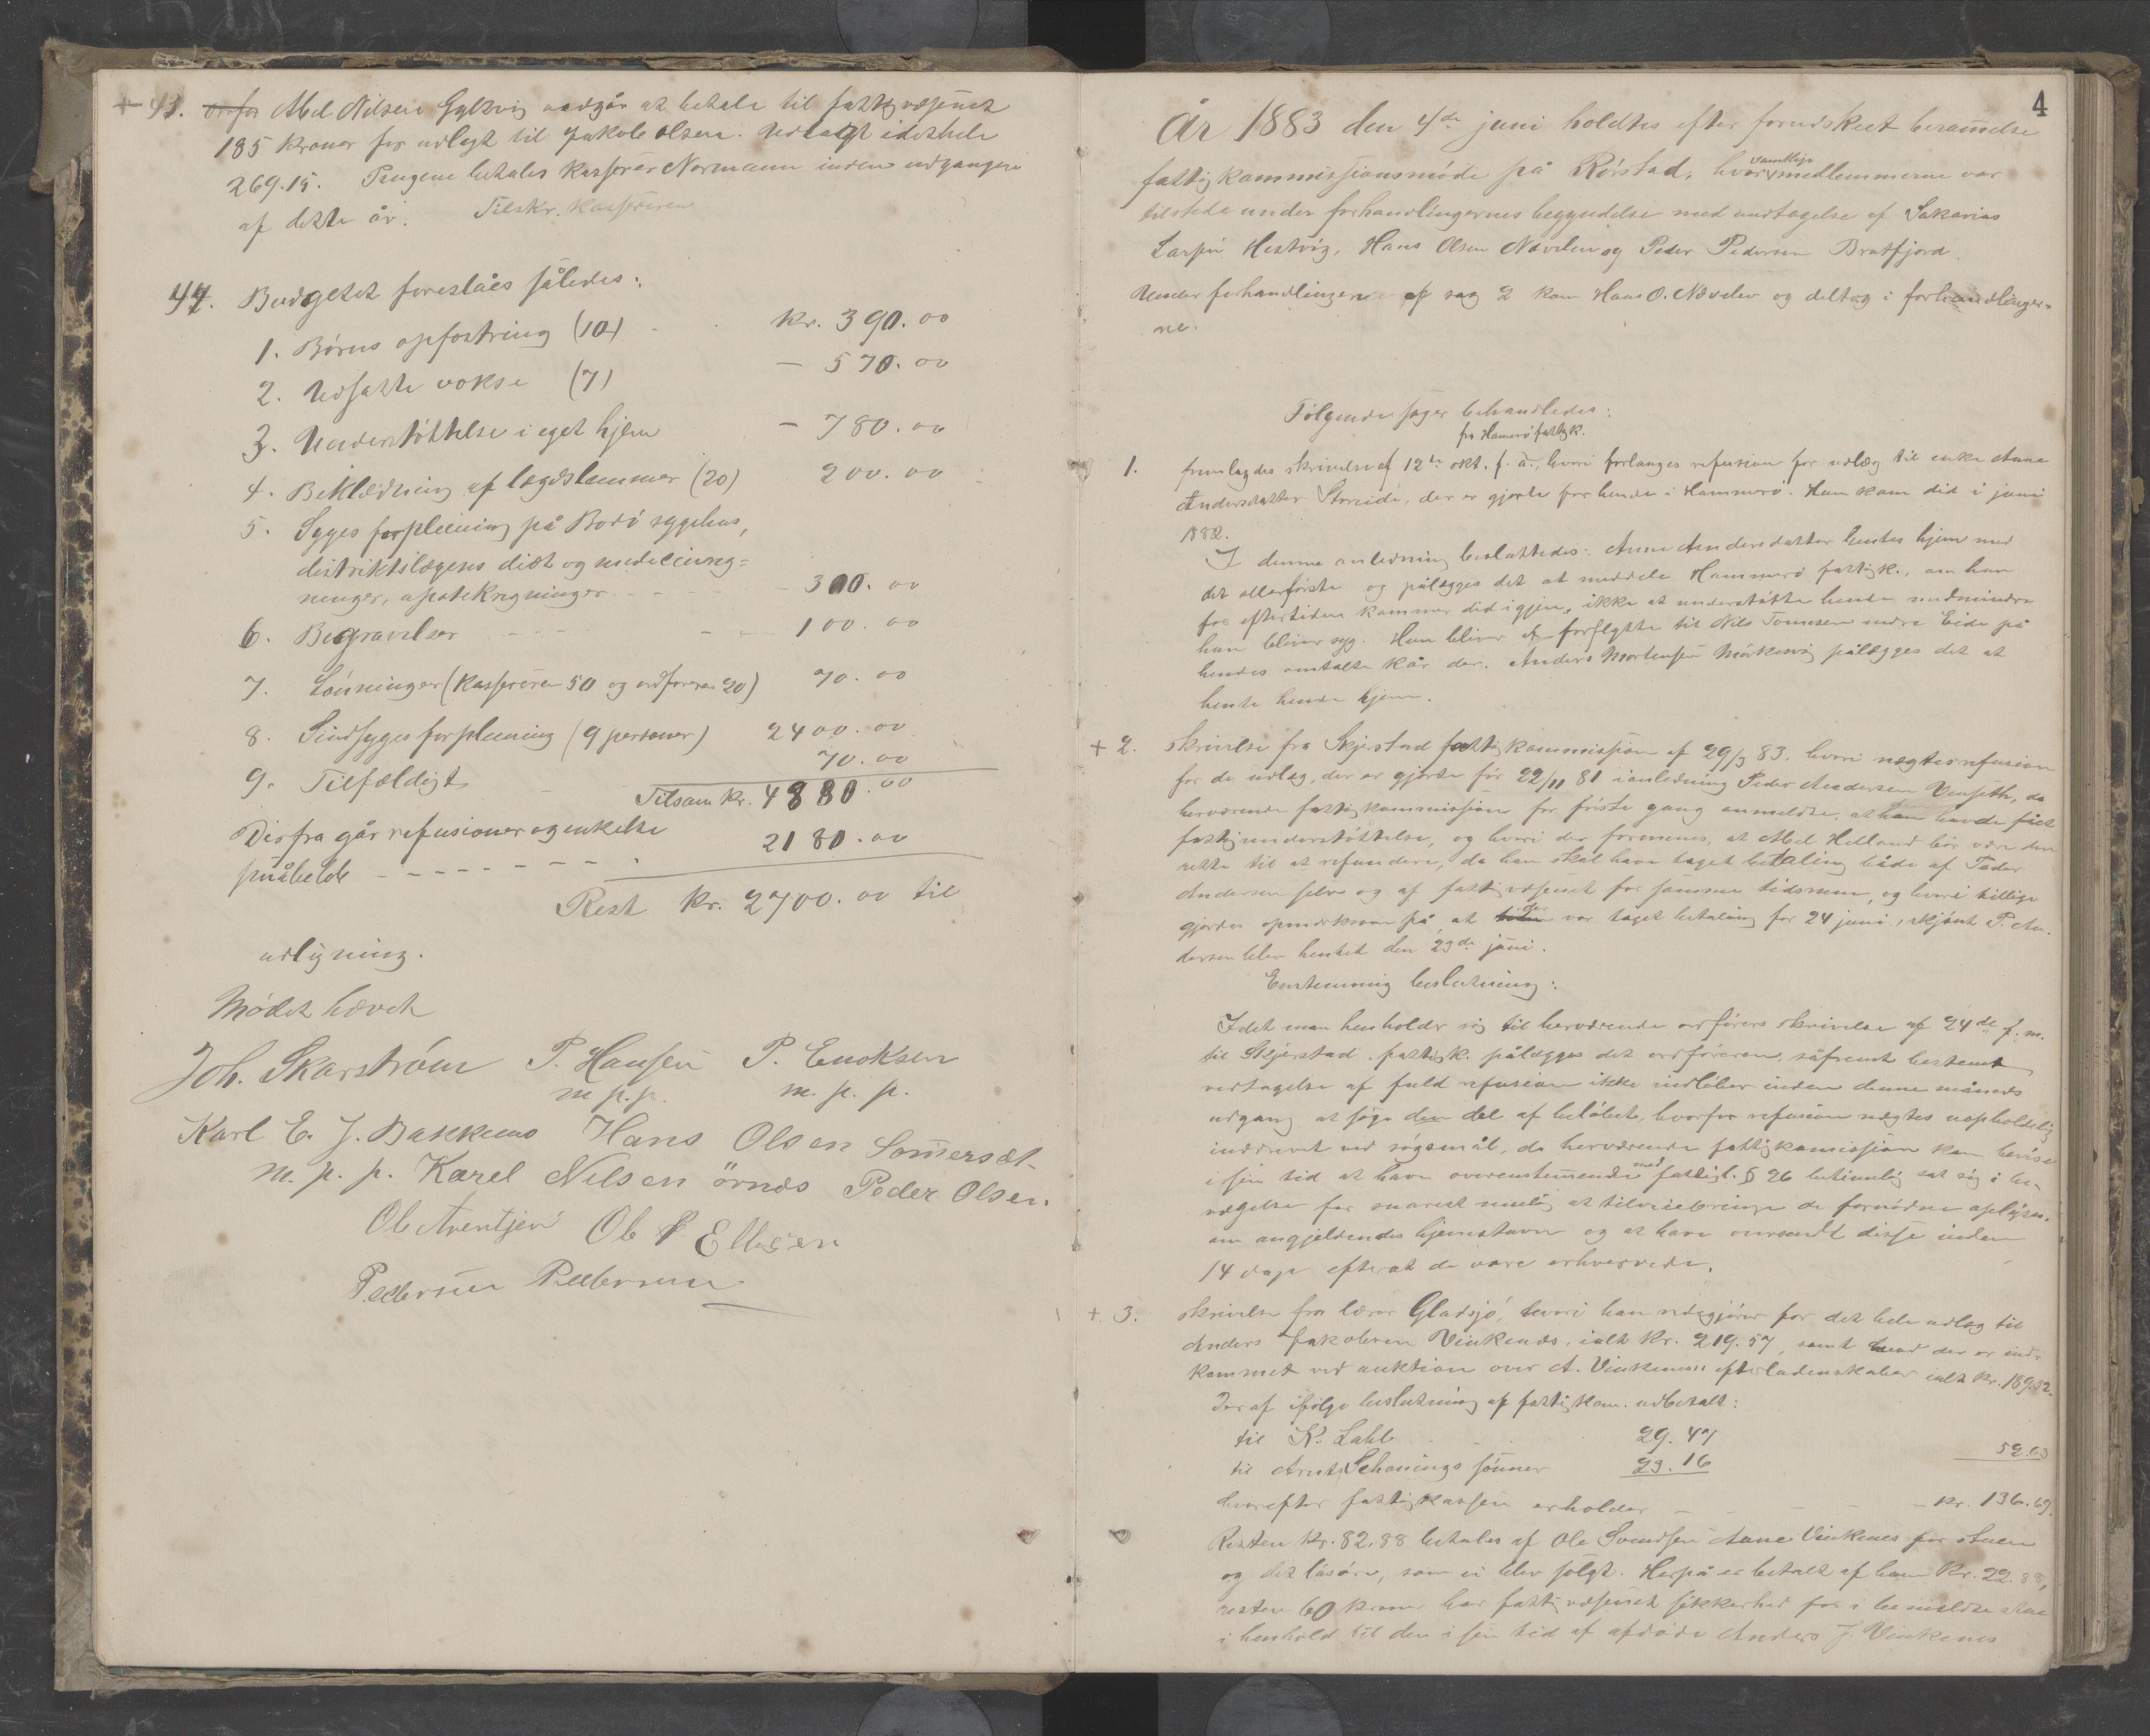 + 43. Abel Nilsen Gylvig undgår at betale til fattigvæsenet
185 kroner for udlagt til Jakob Olsen. Udlagt idethele
269.15. Pengene betales kasserer Normann inden udgangen
af dette år. Tilskr. kassereren
44. Budgetet foreslåes således:
1. Børns opfostring (10) kr. 390.00
2. Udsatte vokse (7) — 570.00
3. Understøttelse i eget hjem — 780.00
4. Beklædning af lægdslemmer (20) 200.00
5. Syges forpleining på Bodø sygehus,
distriktslægens diæt og medicinreg-
ninger, apotekregninger - - - 300.00
6. Begravelser - - - - - 100.00
7. Lønninger (kassereren 50 og ordføreren 20) 70.00
8. Sindsyges forpleining (9 personer) 2400.00
9. Tilfældigt 70.00
Tilsam kr. 4880.00
Derfra går refusioner og enkelte
småbeløb - - - - - - - 2180.00
Rest kr. 2700.00 til
udligning.
Mødet hævet
Joh. Skarstrøm P. Hansen P. Enoksen
m.p.p. m.p.p.
Karl E. J. Bakkenes Hans Olsen Somersæt
m.p.p. Karel Nilsen örnæs Peder Olsen.
Ole Arentsen Ole P Ellesen
Pedersen Pedersen
4
År 1883 den 4de juni holdtes efter forudskeet berammelse
fattigkommissionsmøde på Rørstad, hvor samtlige medlemmerne var
tilstede under forhandlingernes begyndelse med undtagelse af Sakarias
Larsen Hestvig, Hans Olsen Nævelen og Peder Pedersen Bratfjord.
Under forhandlingerne af sag 2 kom Hans O. Nævelen og deltog i forhandlinger-
ne.
Følgende sager behandledes:
fra Hamerø fattigk.
1. fremlagdes skrivelse af 12te okt. f. å., hvori forlanges refusion for udlæg til enke Anne
Andersdatter Storeide, der er gjorte for hende i Hammerø. Hun kom did i juni
1882.
I denne anledning besluttedes: Anne Andersdatter hentes hjem med
det allerførste og pålægges det at meddele Hammerø fattigk., om hun
for eftertiden kommer did igjen, ikke at understøtte hende medmindre
hun bliver syg. Hun bliver at forflytte til Nils Tønnesen indre Eide på
hendes omtalte kår der. Anders Mortensen Mørkesvig pålægges det at
hente hende hjem.
+ 2. Skrivelse fra Skjerstad fattigkommission af 29/3 83, hvori nægtes refusion
for de udlæg, der er gjorte før 22/11 81 i anledning Peder Andersen Venset, da
herværende fattigkommission for første gang anmeldte, at han havde fået
fattigunderstøttelse, og hvori der formenes, at Abel Helland bør være den
rette til at refundere, da han skal have taget betaling både af Peder
Andersen selv og af fattigvæsenet for samme tidsrum, og hvori tillige
gjøres opmærksom på, at der var taget betaling for 24 juni, skjønt P. An-
dersen blev hentet den 23de juni.
Enstemmig beslutning:
Idet man henholder sig til herværende ordførers skrivelse af 24de f. m.
til Skjerstad fattigk. pålægges det ordføreren, såfremt bestemt
vedtagelse af fuld refusion ikke indløber inden denne måneds
udgang at søge den del af beløbet, hvorfor refusion nægtes uopholdelig
inddrevet ved søgsmål, da herværende fattigkommission kan bevise
i sin tid at have overenstemmende med fattigl. § 26 betimelig sat sig i be-
vægelse for snarest mulig at tilveiebringe de fornødne oplysn.
om angjeldendes hjemstavn og at have oversendt disse inden
14 dage efterat de vare erhvervede.
+ 3. Skrivelse fra lærer Gladsjø, hvori han redegjører for det hele udlæg til
Anders Jakobsen Vinkenes, ialt kr. 219.57, samt hvad der er ind-
kommet ved auktion over A. Vinkenes efterladenskaber ialt kr. 189.32.
Deraf ifølge beslutning af fattigkom. udbetalt:
til K. Lahb 29.47
til Arnt Schønings sønner 23.16 52.63
hvorefter fattigkassen erholder — — — — kr. 136.69.
Resten kr. 82.88 betales af Ole Svendsen Anne Vinkenes for stuen
og det løsøre, som ei blev solgt. Herpå er betalt af ham kr. 22.88,
resten 60 kroner har fattigvæsenet sikkerhed for i bemeldte stue
i henhold til den i sin tid af afdøde Anders J. Vinkenes